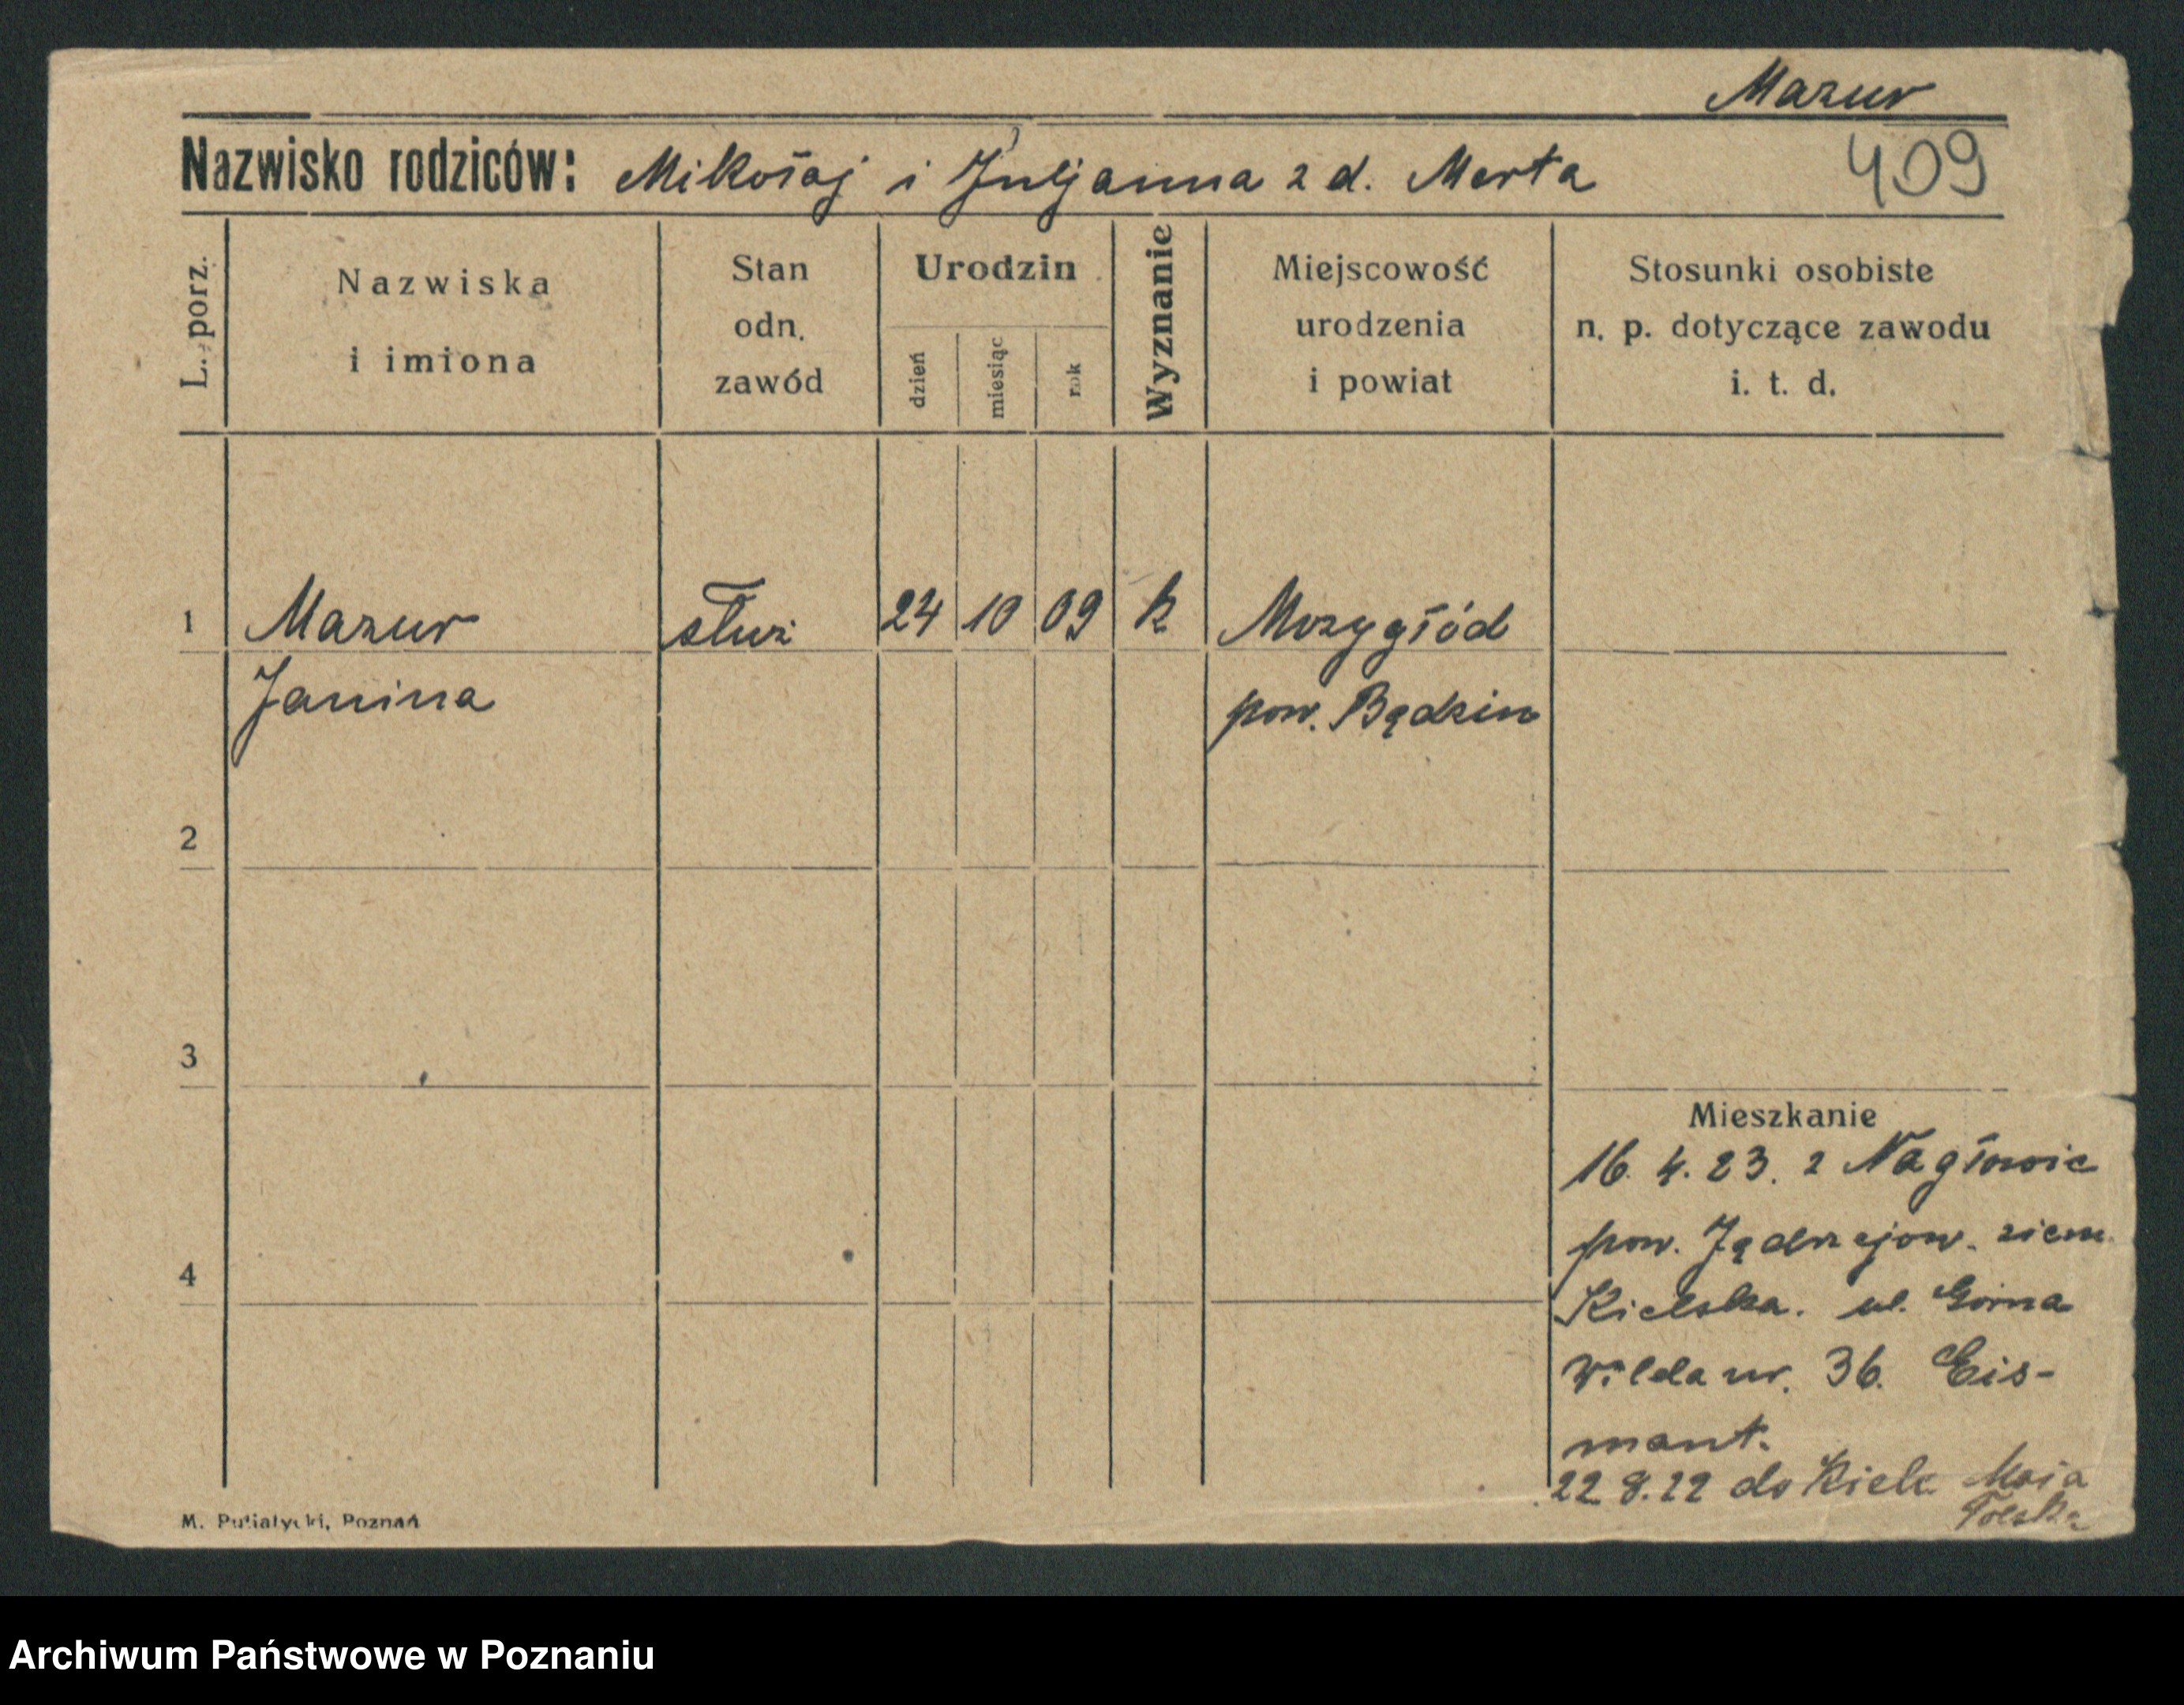 Mazur
Nazwisko rodziców: Mikołaj i Juljanna z d. Merta
409
L. porz.
Nazwiska
i imiona
Stan
odn.
zawód
Urodzin
dzień
miesiąc
rok
Wyznanie
Miejscowość
urodzenia
i powiat
Stosunki osobiste
n. p. dotyczące zawodu
i. t. d.
1 Mazur służ 24 10 09 k Mrzygłód
Janina pow. Będzin
2
3
Mieszkanie
16. 4. 23. z Nagłowic
pow. Jędrzejow. ziem.
4
Kielska. ul. Górna
Wilda nr. 36. Eis-
mant.
22 8. 22 do Kielc
M. Putiatycki, Poznań
Archiwum Państwowe w Poznaniu